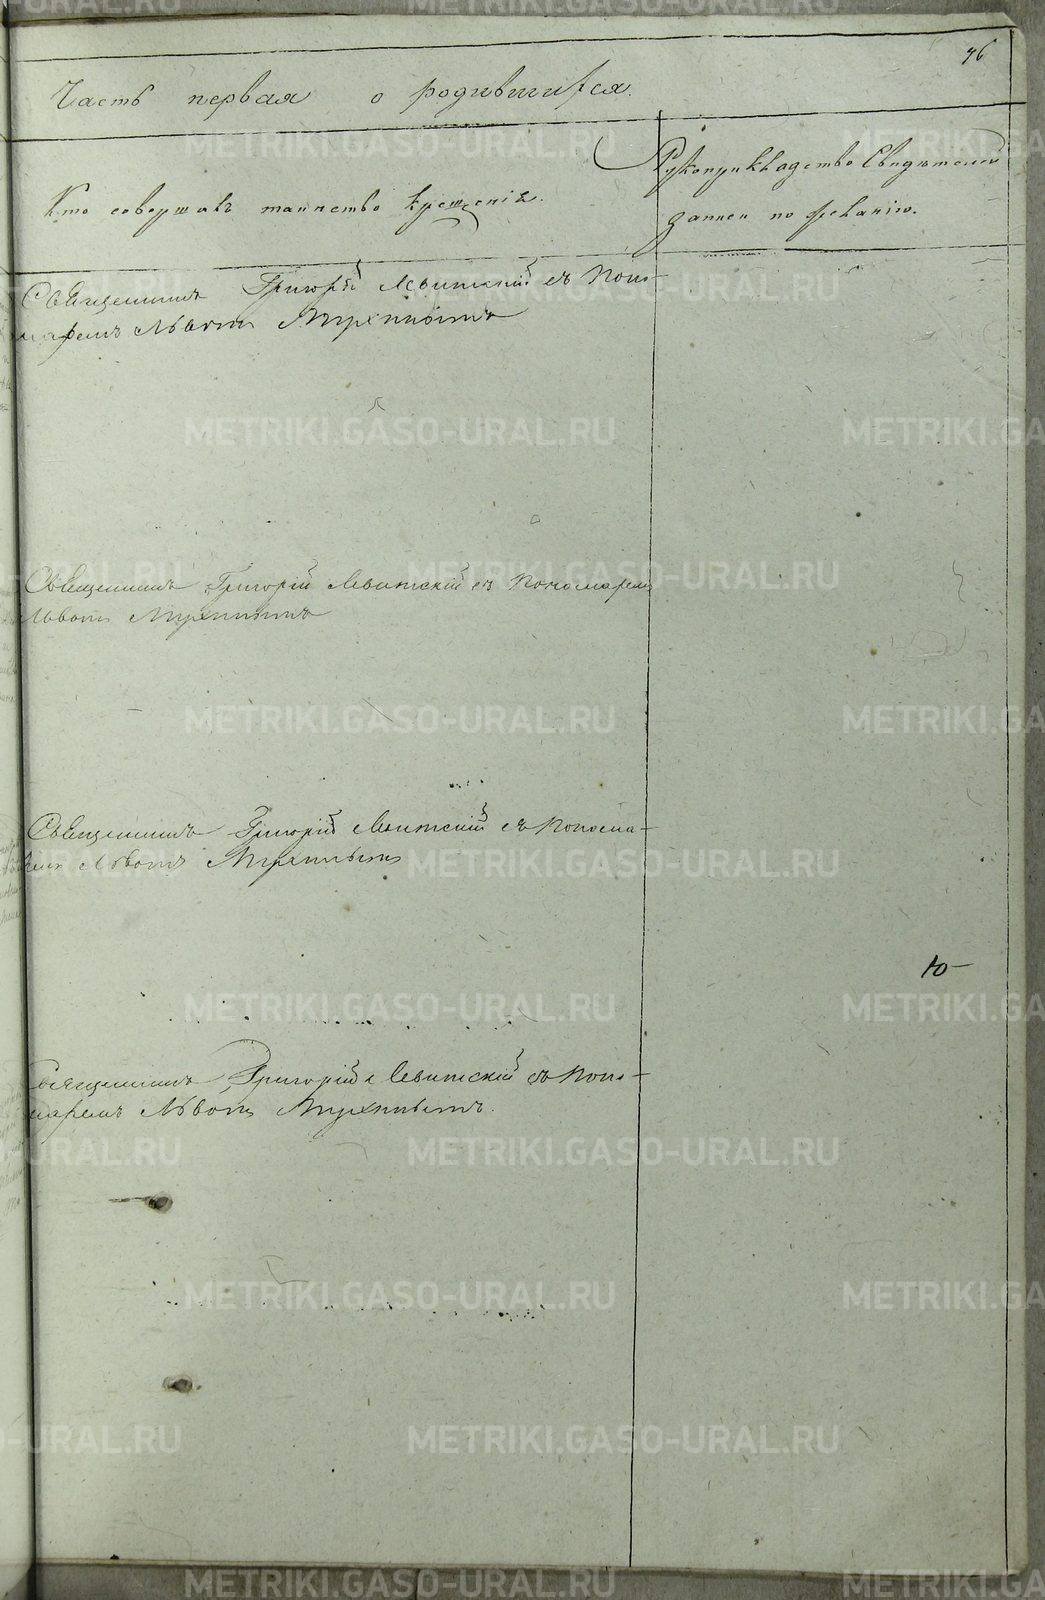 76
Часть первая о родившихся.
Кто совершалъ таинство крещенія.
Рукоприкладство Свидѣтелей
записи по желанію.
Священникъ Григорій Левитскій съ Поно-
маремъ Львомъ Мухинымъ
Священникъ Григорій Левитскій съ Пономаремъ
Львомъ Мухинымъ
Священникъ Григорій Левитскій съ Понома-
ремъ Львомъ Мухинымъ
10
Священникъ Григорій Левитскій съ Поно-
маремъ Львомъ Мухинымъ.
METRIKI.GASO-URAL.RU